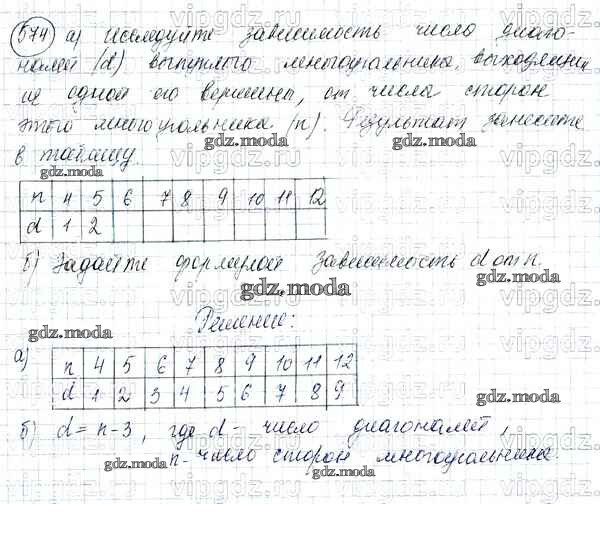 574 а) исследуйте зависимость число диаго-
налей (d) выпуклого многоугольника, выходящих
из одной его вершины, от числа сторон
этого многоугольника (n). Результат занесите
в таблицу.
n 4 5 6 7 8 9 10 11 12
d 1 2
б) Задайте формулой зависимость d от n.
Решение:
а) n 4 5 6 7 8 9 10 11 12
d 1 2 3 4 5 6 7 8 9
б) d = n - 3, где d - число диагоналей,
n - число сторон многоугольника.
gdz.moda
vipgdz.ru